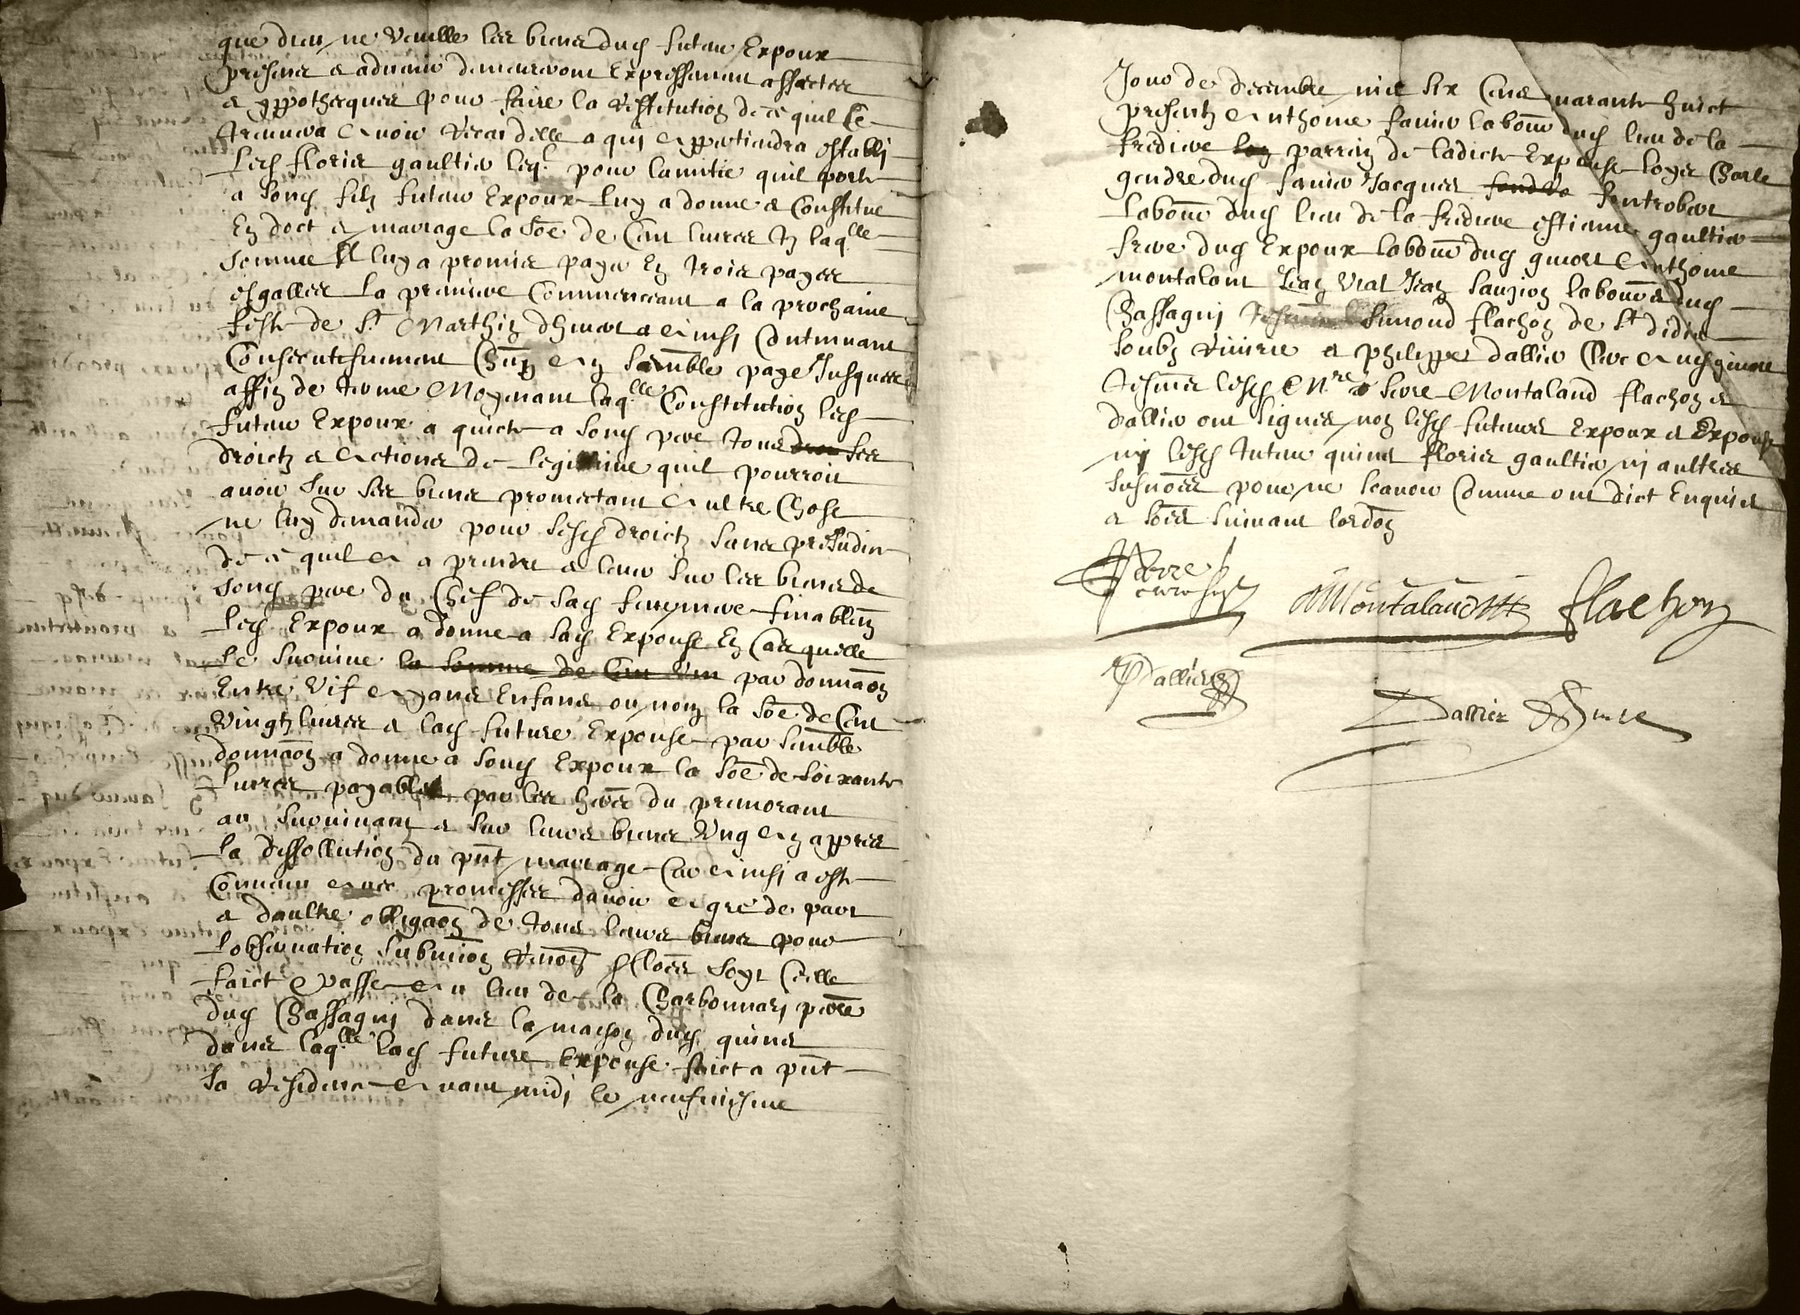 que dieu ne veuille les biens dud futur Expoux
presens & aduenir demeureront Expressement affectes
& yppotheques pour faire la restitution de ce quil se
treuuera Auoir receu delle a qui Appartiendra establi
led floris gaultier leql pour lamitie quil porte
a sond filz futur Expoux luy a donne & Constitue
En doct & mariage la soe de Cent liures tz laqlle
somme Il luy a promis payer En trois payes
esgalles la premiere Commenceant a la prochaine
feste de st Marthin dhiuer & Ainsi Continuant
Consecutifuement Chun An semble paye Jusques
affin de terme Moyenant laqlle Constitution led
futur Expoux a quicte a sond pere tous ses
droictz & Actions de legitime quil pourroit
auoir sur ses biens promectant Aultre Chose
ne luy demander pour sesd droictz sans preiudice
de ce quil A a prendre & leuer sur les biens de
sond pere du Chef de sad feu mere finablemt
led Expoux a donne a sad Expouse En Cas quelle
le suruiue la somme de Cent par donnaon
Entre vif Ayans Enfans ou non la soe de Cent
vingtz liures & lad future Expouse par semble
donnaon a donne a sond Expoux la soe de soixante
liures payables par les hers du premorant
au suruiuant & sur leurs biens Ung An appres
la dissollution du pnt mariage Car Ainsi a este
Conuenu Auec promesses dauoir Agre de part
& daultre obligaon de tous leurs biens pour
lobseruation submion renon & Clozes soyt Celle
faict & passe Au lieu de la Charbonnari pere
dud Chassagni dans la maison dud quines
dans laqlle lad future Expouse faict a pnt
sa residence Auant midi le neufuiesme
Jour de decembre mil six Cens quarante huict
presentz Anthoine fauier labour dud lieu de la
fredière parrein de ladicte Expouse loys Charle
gendre dud fauier Jacques fontrobert
labour dud lieu de la fredière estienne gaultier
frere dud Expoux labour dud giuors Anthoine
montalant Jean vial Jean saujon labours dud
Chassagni simond flachon de st didier
soubz riuirie & philippe dallier Clerc Aud giuors
tesmes lesd Mre Serre Montaland flachon &
dallier ont signes non lesd futurs Expoux & Expouse
ny lesd tuteur quines floris gaultier ni aultres
susnoes pour ne scauoir Comme ont dict Enquis
& soes suiuant lordon
Serre
Montalandtt flachon
PDallier
Dallier